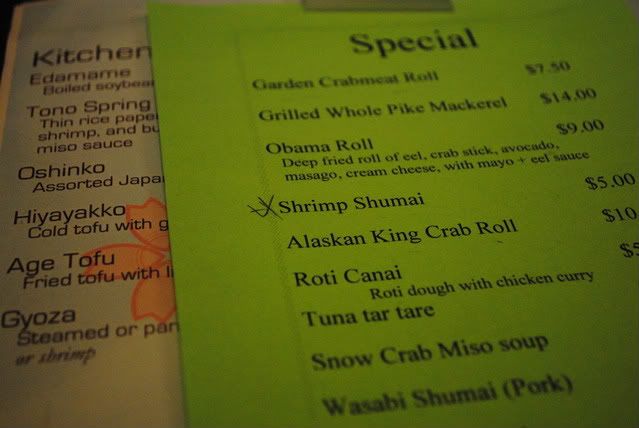 Kitchen
Edamame
Boiled soybea
Tono Spring
Thin rice pape
shrimp, and bu
miso sauce
Oshinko
Assorted Japa
Hiyayakko
Cold tofu with g
Age Tofu
Fried tofu with li
Gyoza
Steamed or pan
or shrimp
Special
Garden Crabmeat Roll $7.50
Grilled Whole Pike Mackerel $14.00
Obama Roll $9.00
Deep fried roll of eel, crab stick, avocado,
masago, cream cheese, with mayo + eel sauce
Shrimp Shumai $5.00
Alaskan King Crab Roll $10
Roti Canai $5
Roti dough with chicken curry
Tuna tar tare
Snow Crab Miso soup
Wasabi Shumai (Pork)